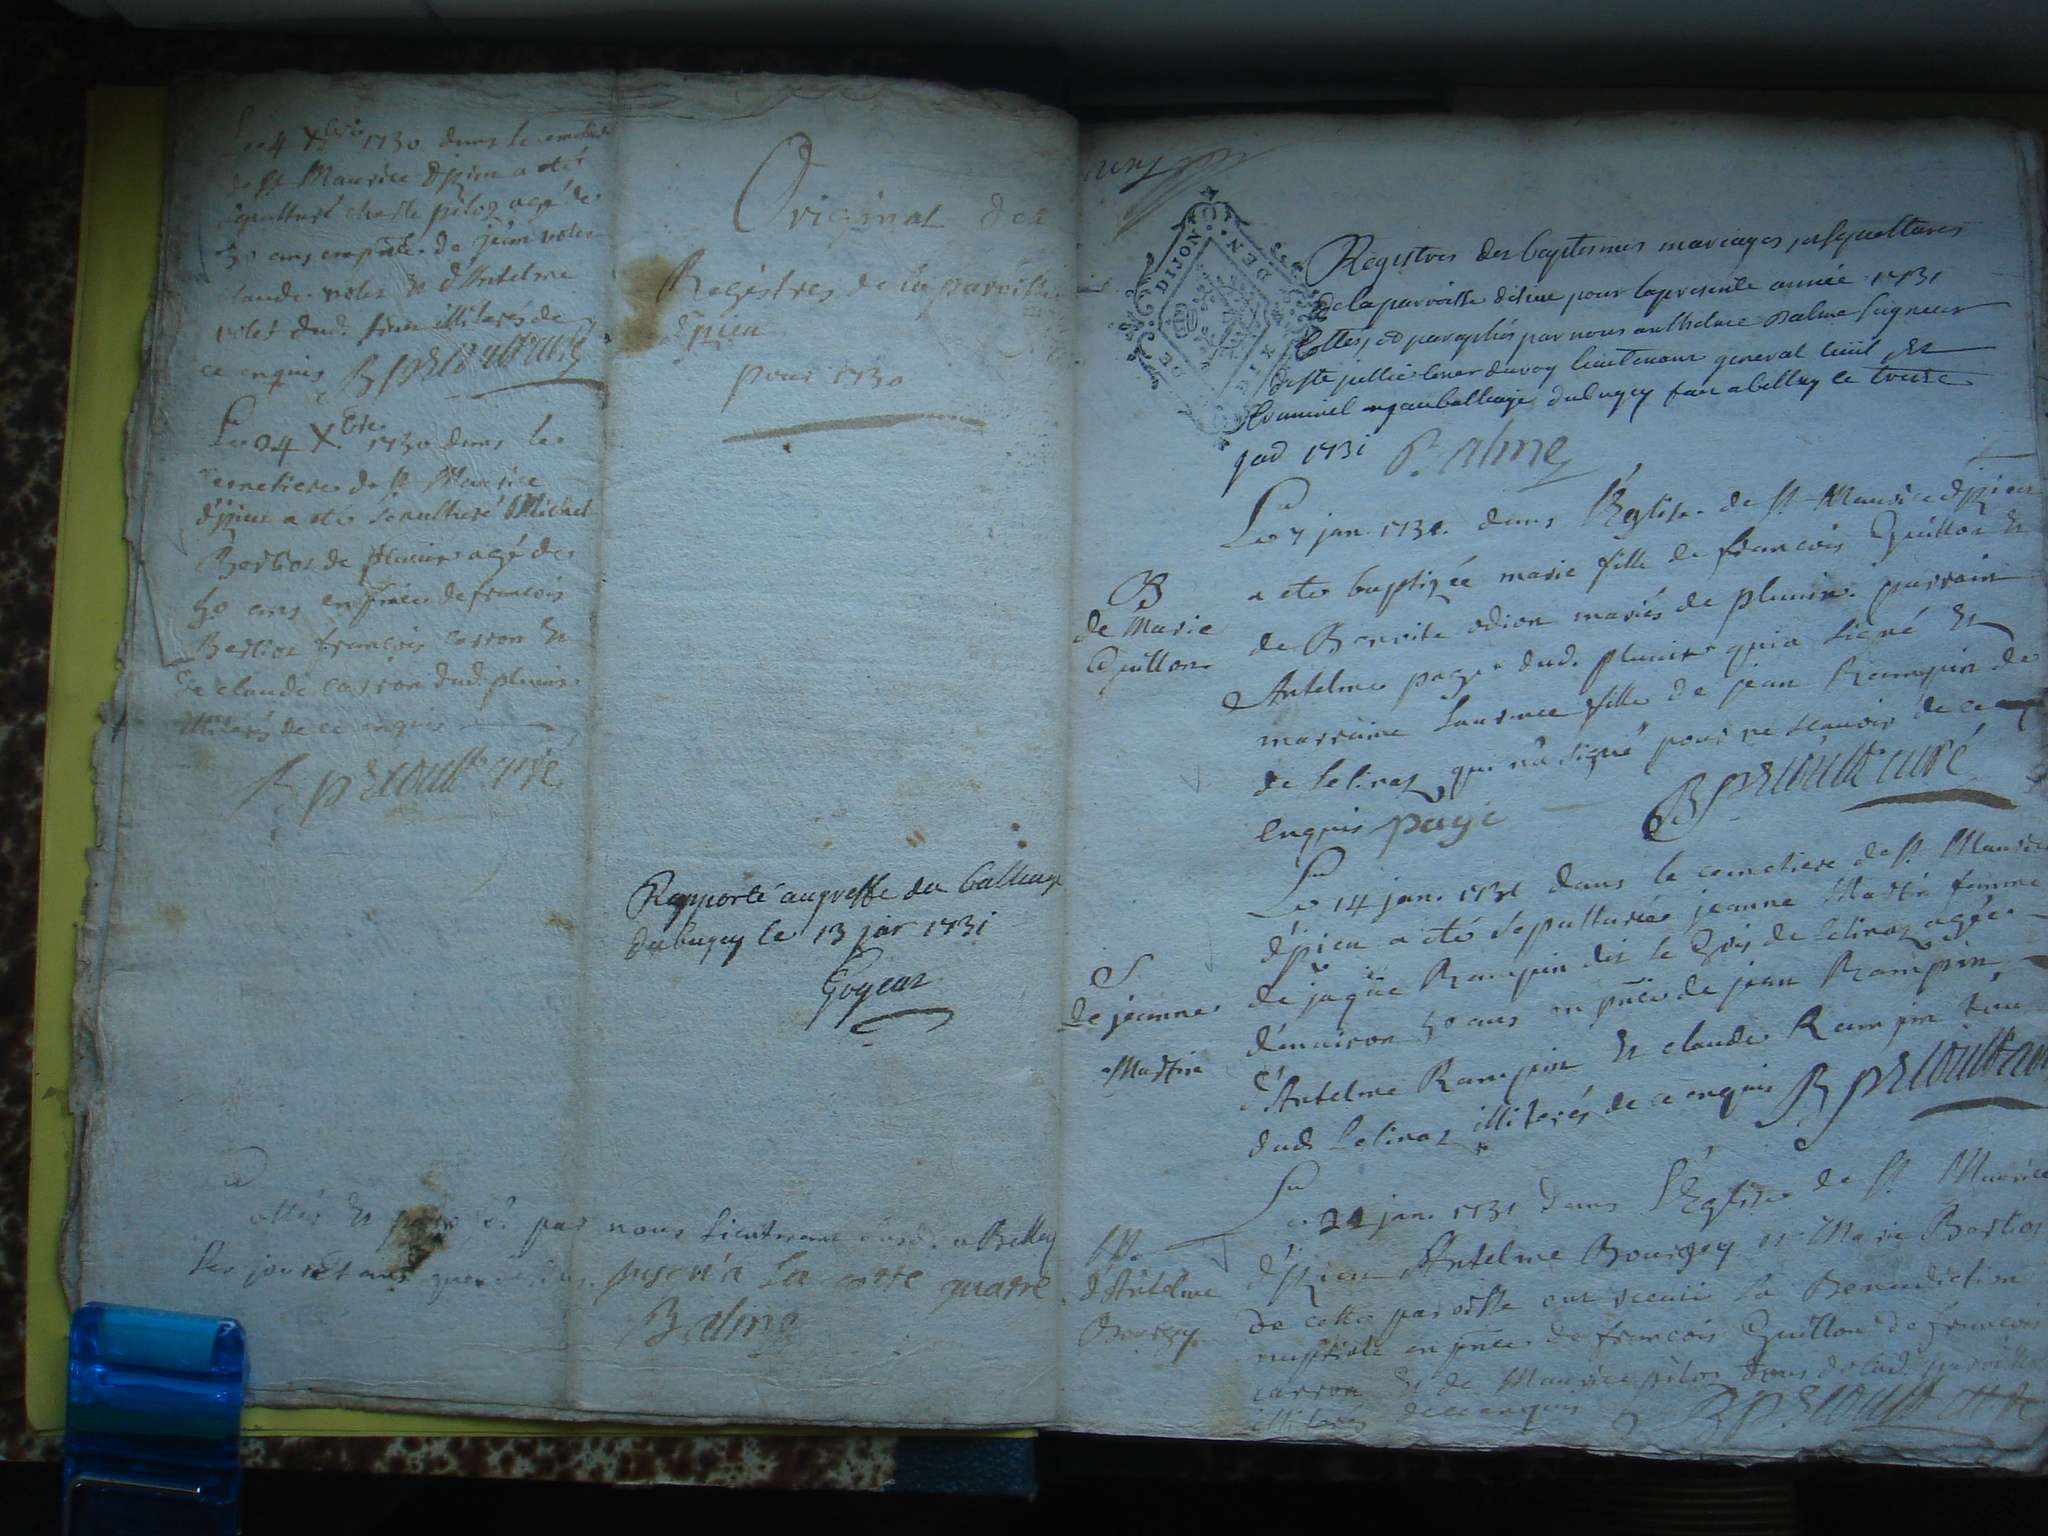 Le 4 Xbre 1730 dans le
de St Maurice d'pieu a eté
sepulturé piloz agé de
ans en pnce de jean volet
claude volet & d'Antelme
volet dud. illiterés de
ce enquis B prcoult curé
Le 24 Xbre 1730 dans le
cemetiere de St Maurice
d'pieu a eté sepulturé Michel
Bertior de plunier agé de
50 ans en pnce de francois
Bertior francois carron &
de claude carron dud. plunier
illiterés de ce enquis
B prcoult curé
Original des
Registres de la paroisse
d'pieu
pour 1730
Rapporté au greffe du balliage
du bugey le 13 jar 1731
Goyeat
par nous Lieutenant a Belley
Les jour & an jusqu'a la cotte quatre
Balme
DE DIJON
Registres des baptesmes mariages sepultures
de la parroisse pour la presente année 1731
Cottes, et paraphés par nous anthelme Balme seigneur
de ste jullie coner du roy lieutenant general civil &
Criminel au balliage du bugey fait a belley ce treize
jad 1731 Balme
B
de Marie
Guillon
Le 7 jan. 1731. dans l'Eglise de St Maurice d'pieu
a eté baptizée marie fille de francois Guillon &
de Benoite odion mariés de plunier. parrain
Antelme page dud. plunier qui a signé &
marraine Laurence fille de jean Rampin de
de Selinaz qui n'a signé pour ne scavoir de ce
enquis page B prcoult curé
S
de jeanne
Martin
Le 14 jan. 1731 dans le cemetiere de St Maurice
d'pieu a eté sepulturée jeanne Martin femme
de jaque Rampin dit le Gris de Selinaz agée
d'environ 50 ans en pnce de jean Rampin,
d'Antelme Rampin & claude Rampin tous
dud. Selinaz illiterés de ce enquis B prcoult curé
d'Antelme
Bourgey
Le 22 jan. 1731 dans l'Eglise de St Maurice
d'pieu Antelme Bourgey et Marie Bertior
de cette paroisse ont receu la Benediction
nuptiale en pnce de francois Guillon de francois
carron & de Maurice piloz tous de lad. paroisse
illiterés de ce enquis B prcoult curé